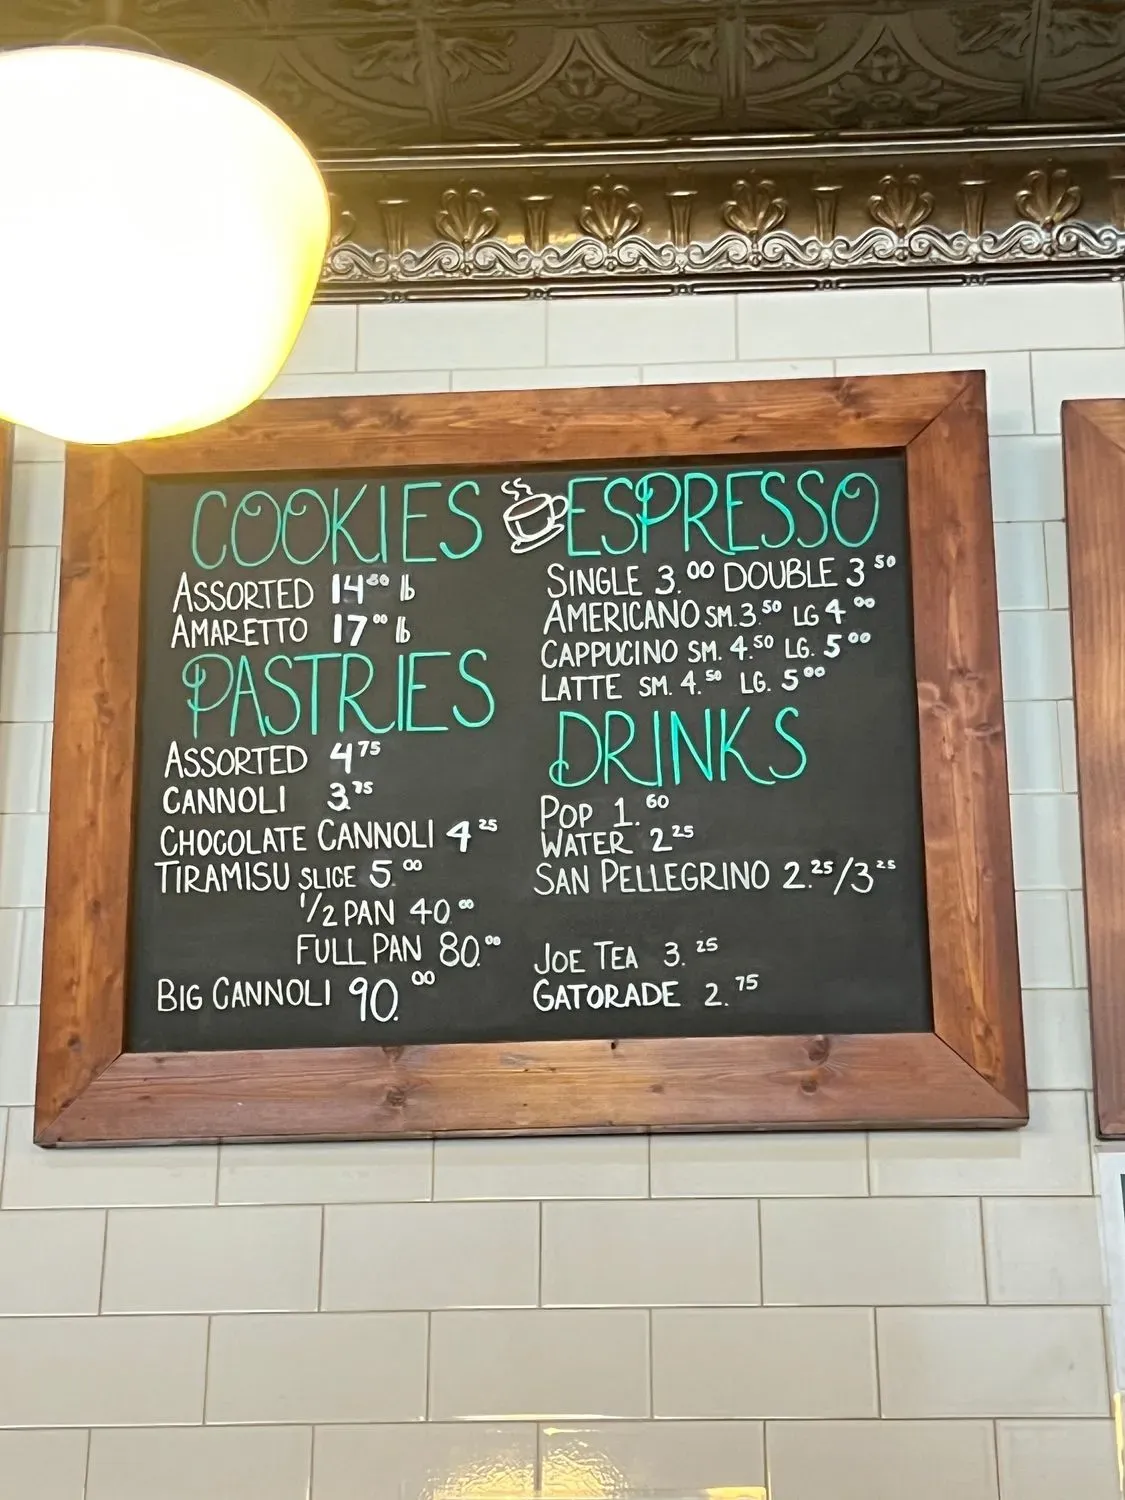 COOKIES
ASSORTED 14.00 lb
AMARETTO 17.00 lb
PASTRIES
ASSORTED 4.75
CANNOLI 3.75
CHOCOLATE CANNOLI 4.25
TIRAMISU SLICE 5.00
1/2 PAN 40.00
FULL PAN 80.00
BIG CANNOLI 90.00
ESPRESSO
SINGLE 3.00 DOUBLE 3.50
AMERICANO SM. 3.50 LG 4.00
CAPPUCINO SM. 4.50 LG. 5.00
LATTE SM. 4.50 LG. 5.00
DRINKS
POP 1.60
WATER 2.25
SAN PELLEGRINO 2.25/3.25
JOE TEA 3.25
GATORADE 2.75